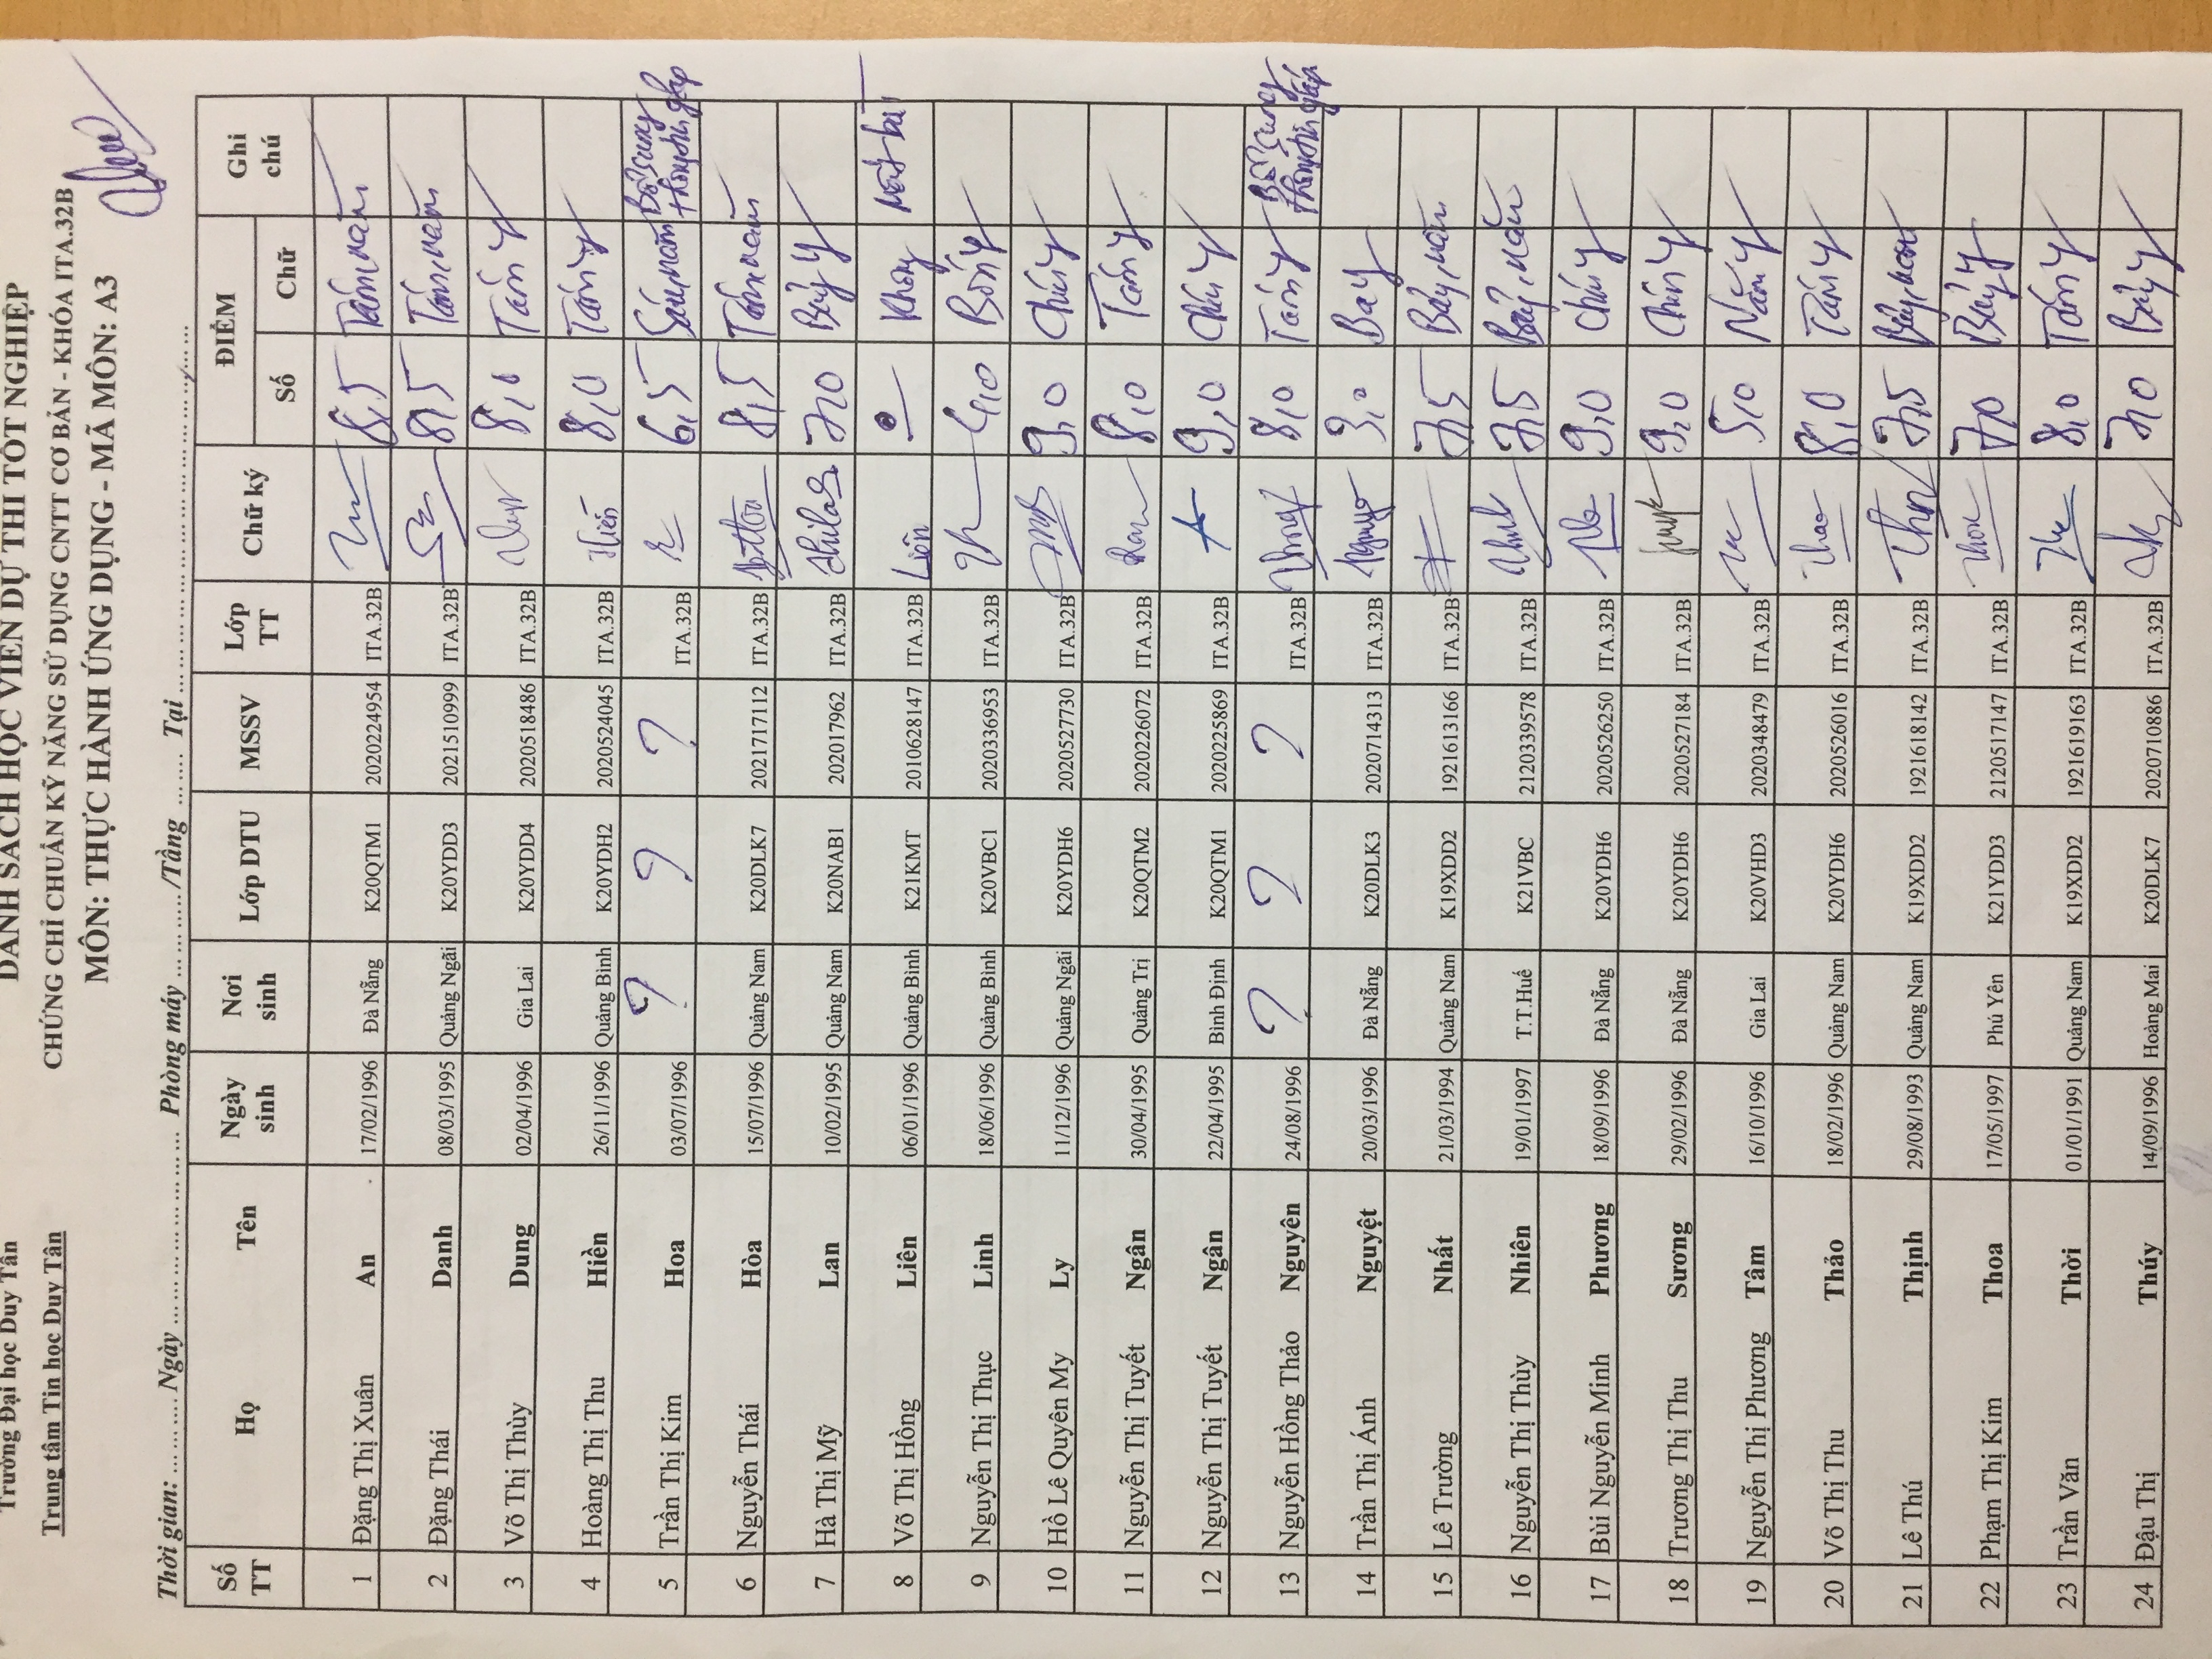 Trường Đại học Duy Tân
Trung tâm Tin học Duy Tân
DANH SÁCH HỌC VIÊN DỰ THI TỐT NGHIỆP
CHỨNG CHỈ CHUẨN KỸ NĂNG SỬ DỤNG CNTT CƠ BẢN - KHÓA ITA.32B
MÔN: THỰC HÀNH ỨNG DỤNG - MÃ MÔN: A3
Thời gian: ............ Ngày ........................ Phòng máy ............/Tầng ........ Tại ........................
Số TT Họ Tên Ngày sinh Nơi sinh Lớp DTU MSSV Lớp TT Chữ ký ĐIỂM Ghi chú
Số Chữ
1 Đặng Thị Xuân An 17/02/1996 Đà Nẵng K20QTM1 2020224954 ITA.32B 8,5 Tám, năm
2 Đặng Thái Danh 08/03/1995 Quảng Ngãi K20YDD3 2021510999 ITA.32B 8,5 Tám, năm
3 Võ Thị Thùy Dung 02/04/1996 Gia Lai K20YDD4 2020518486 ITA.32B 8,0 Tám
4 Hoàng Thị Thu Hiền 26/11/1996 Quảng Bình K20YDH2 2020524045 ITA.32B Hiền 8,0 Tám
5 Trần Thị Kim Hoa 03/07/1996 ? ? ? ITA.32B 6,5 Sáu, năm Bổ sung thông tin, ghép
6 Nguyễn Thái Hòa 15/07/1996 Quảng Nam K20DLK7 2021717112 ITA.32B 8,5 Tám, năm
7 Hà Thị Mỹ Lan 10/02/1995 Quảng Nam K20NAB1 202017962 ITA.32B 7,0 Bảy
8 Võ Thị Hồng Liên 06/01/1996 Quảng Bình K21KMT 2010628147 ITA.32B Liên 0 Không
9 Nguyễn Thị Thục Linh 18/06/1996 Quảng Bình K20VBC1 2020336953 ITA.32B 4,0 Bốn
10 Hồ Lê Quyên My Ly 11/12/1996 Quảng Ngãi K20YDH6 2020527730 ITA.32B 9,0 Chín
11 Nguyễn Thị Tuyết Ngân 30/04/1995 Quảng Trị K20QTM2 2020226072 ITA.32B 8,0 Tám
12 Nguyễn Thị Tuyết Ngân 22/04/1995 Bình Định K20QTM1 2020225869 ITA.32B 9,0 Chín
13 Nguyễn Hồng Thảo Nguyên 24/08/1996 ? ? ? ITA.32B 8,0 Tám Bổ sung thông tin, ghép
14 Trần Thị Ánh Nguyệt 20/03/1996 Đà Nẵng K20DLK3 2020714313 ITA.32B Bay
15 Lê Trường Nhất 21/03/1994 Quảng Nam K19XDD2 1921613166 ITA.32B 7,5 Bảy, năm
16 Nguyễn Thị Thùy Nhiên 19/01/1997 T.T.Huế K21VBC 2120339578 ITA.32B 7,5 Bảy, năm
17 Bùi Nguyễn Minh Phương 18/09/1996 Đà Nẵng K20YDH6 2020526250 ITA.32B 9,0 Chín
18 Trương Thị Thu Sương 29/02/1996 Đà Nẵng K20YDH6 2020527184 ITA.32B 9,0 Chín
19 Nguyễn Thị Phương Tâm 16/10/1996 Gia Lai K20VHD3 2020348479 ITA.32B 5,0 Năm
20 Võ Thị Thu Thảo 18/02/1996 Quảng Nam K20YDH6 2020526016 ITA.32B 8,0 Tám
21 Lê Thú Thịnh 29/08/1993 Quảng Nam K19XDD2 1921618142 ITA.32B 7,5 Bảy, năm
22 Phạm Thị Kim Thoa 17/05/1997 Phú Yên K21YDD3 2120517147 ITA.32B Thoa 7,0 Bảy
23 Trần Văn Thời 01/01/1991 Quảng Nam K19XDD2 1921619163 ITA.32B 8,0 Tám
24 Đậu Thị Thúy 14/09/1996 Hoàng Mai K20DLK7 2020710886 ITA.32B 7,0 Bảy